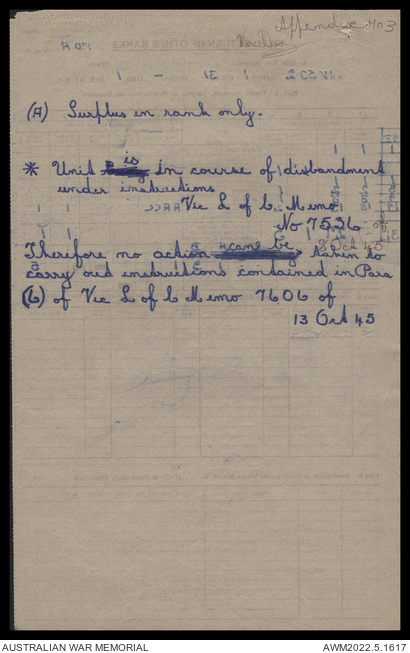 Appendix No 3
(A) Surplus in rank only.
* Unit is in course of disbandment
under instructions
Vic L of C Memo
No 7536
Therefore no action taken to
carry out instructions contained in Para
(b) of Vic L of C Memo 7606 of
13 Oct 45
AUSTRALIAN WAR MEMORIAL
AWM2022.5.1617